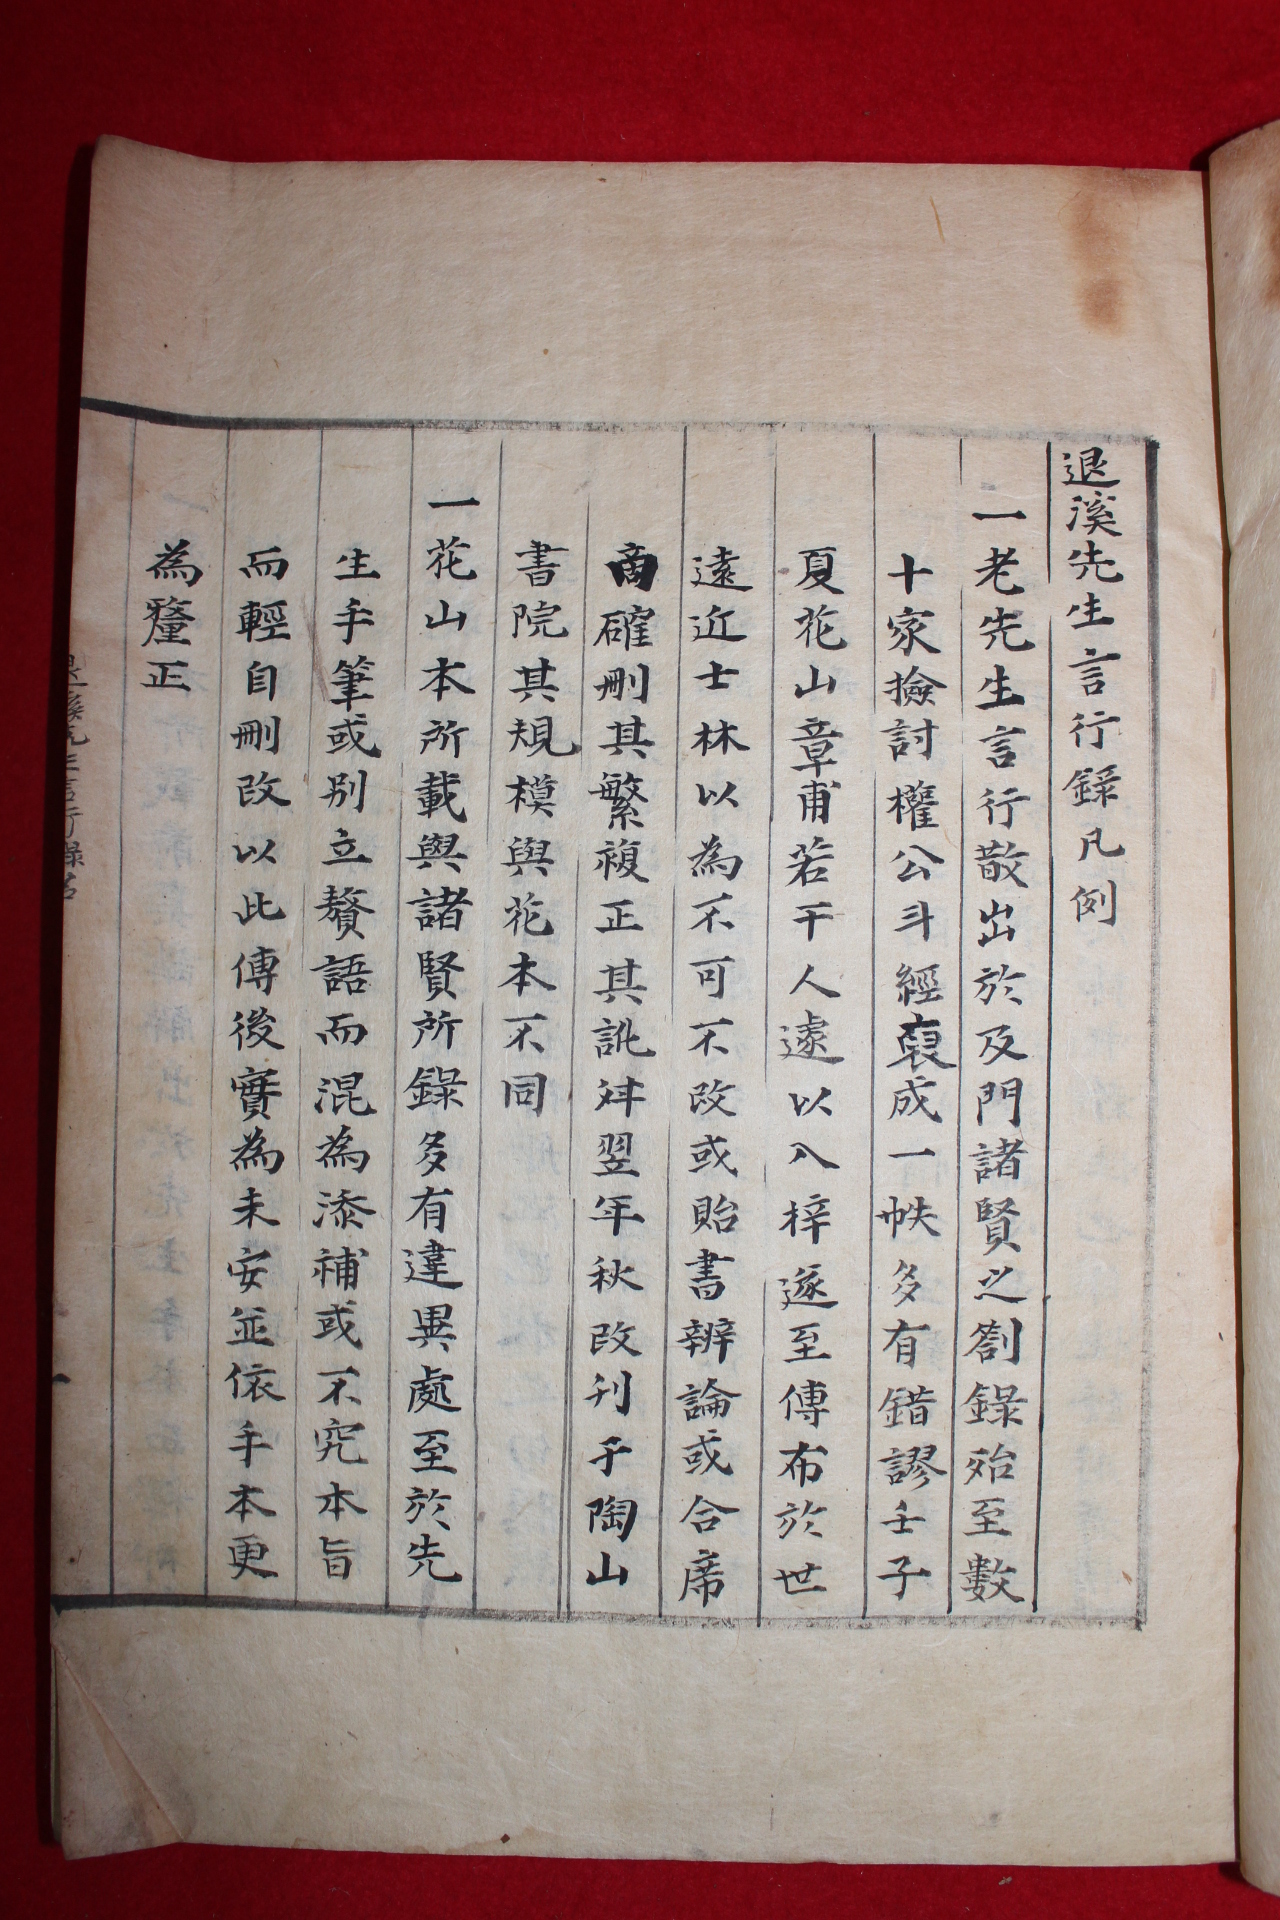 退溪先生言行錄凡例
一老先生言行散出於及門諸賢之劄錄殆至數
十家撿討權公斗經裒成一帙多有錯謬壬子
夏花山章甫若干人遽以入梓遂至傳布於世
遠近士林以為不可不改或貽書辨論或合席
商確刪其繁複正其訛舛翌年秋改刊于陶山
書院其規模與花本不同
一花山本所載與諸賢所錄多有違異處至於先
生手筆或別立贅語而混為添補或不究本旨
而輕自刪改以此傳後實為未安並依手本更
為釐正